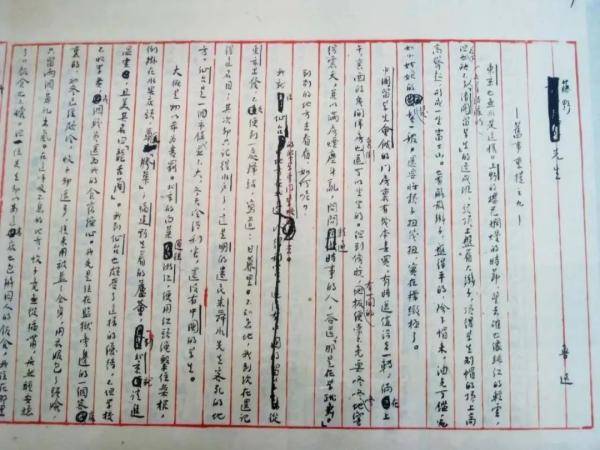 藤野先生
——舊事重提之九——
魯迅
東京也無非是這樣。上野的櫻花爛熳的時節,望去確也像緋紅的輕雲,
但花下也缺不了成群結隊的「清國留學生」的速成班,頭頂上盤着大辮子,頂得學生制帽的頂上高
高聳起,形成一座富士山。也有解散辮子,盤得平的,除下帽來,油光可鑑,宛
如小姑娘的髮髻一般,還要將脖子扭幾扭。實在標緻極了。
中國留學生會館的門房裏有幾本書買,有時還值得去一轉;倘在上
午,裏面的幾間洋房裏倒也還可以坐坐的。但到傍晚,有一間的地板便常不免要咚咚咚地響
得震天,兼以滿房煙塵斗亂;問問精通時事的人,答道,「那是在學跳舞。」
到別的地方去看看,如何呢?
我就往仙台的醫學專門學校去。從
東京出發,不久便到一處驛站,寫道:日暮里。不知怎地,我到現在還記
得這名目。其次却只記得水戶了,這是明的遺民朱舜水先生客死的地
方。仙台是一個市鎮,並不大;冬天冷得利害;還沒有中國的學生。
大概是物以希為貴罷。北京的白菜運往浙江,便用紅頭繩繫住菜根,
倒掛在水果店頭,尊為「膠菜」;福建野生着的蘆薈,一到北京就請進
溫室,且美其名曰「龍舌蘭」。我到仙台也頗受了這樣的優待,不但學校
不收學費,幾個職員還為我的食宿操心。我先是住在監獄旁邊的一個客店
裏的,初冬已經頗冷,蚊子却還多,後來用被蓋了全身,用衣服包了頭臉,
只留兩個鼻孔出氣。在這呼吸不息的地方,蚊子竟無從插嘴,居然睡安穩
了。飯食也不壞。但一位先生却以為這客店也包辦囚人的飯食,我住在那里